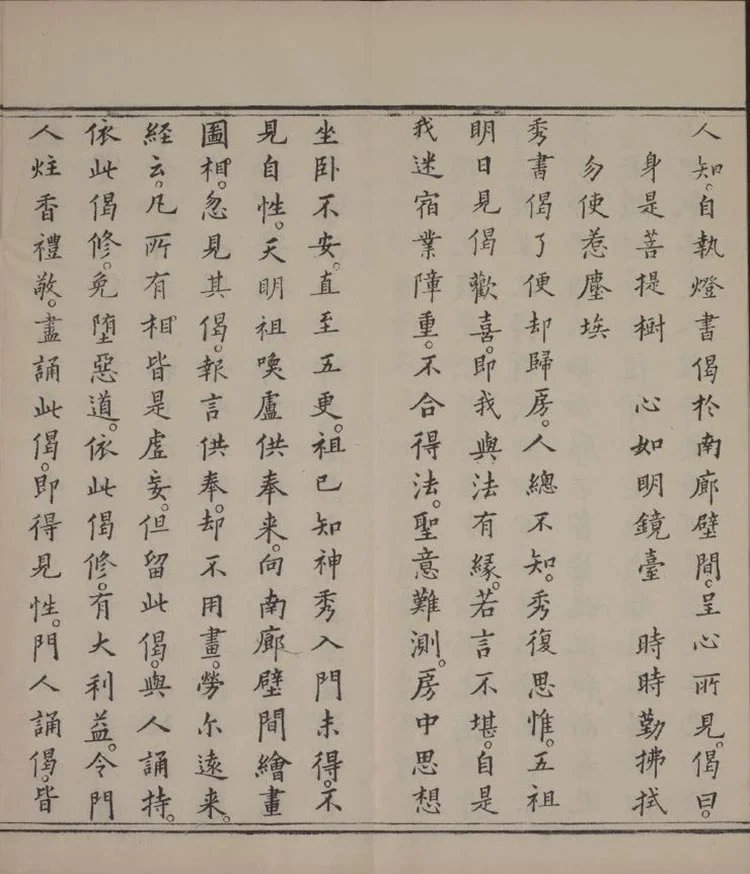 人知。自執燈書偈於南廊壁間。呈心所見。偈曰。
身是菩提樹　心如明鏡臺　時時勤拂拭
勿使惹塵埃
秀書偈了便却歸房。人總不知。秀復思惟。五祖
明日見偈歡喜。即我與法有緣。若言不堪。自是
我迷宿業障重。不合得法。聖意難測。房中思想
坐卧不安。直至五更。祖已知神秀入門未得。不
見自性。天明祖喚盧供奉来。向南廊壁間繪畫
圖相。忽見其偈。報言供奉。却不用畫。勞尔遠来。
経云。凡所有相皆是虛妄。但留此偈。與人誦持。
依此偈修。免墮惡道。依此偈修。有大利益。令門
人炷香禮敬。盡誦此偈。即得見性。門人誦偈。皆